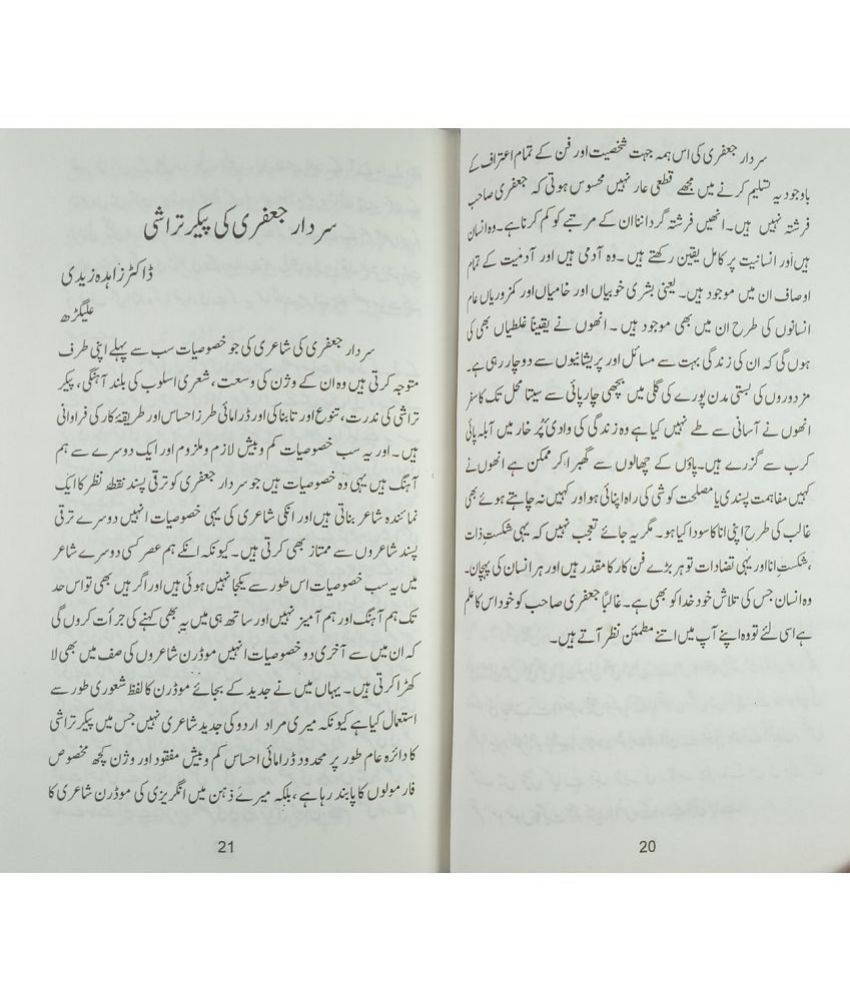 سردار جعفری کی اس ہمہ جہت شخصیت اور فن کے تمام اعتراف کے
باوجود یہ تسلیم کرنے میں مجھے قطعی عار نہیں محسوس ہوتی کہ جعفری صاحب
فرشتہ نہیں ہیں۔ انھیں فرشتہ گرداننا ان کے مرتبے کو کم کرنا ہے۔ وہ انسان
ہیں اور انسانیت پر کامل یقین رکھتے ہیں۔ وہ آدمی ہیں اور آدمیت کے تمام
اوصاف ان میں موجود ہیں۔ یعنی بشری خوبیاں اور خامیاں اور کمزوریاں عام
انسانوں کی طرح ان میں بھی موجود ہیں ۔ انھوں نے یقیناً غلطیاں بھی کی
ہوں گی کہ ان کی زندگی بہت سے مسائل اور پریشانیوں سے دوچار رہی ہے۔
مزدوروں کی بستی مدن پورے کی گلی میں بچھی چارپائی سے سیتا محل تک کا سفر
انھوں نے آسانی سے طے نہیں کیا ہے وہ زندگی کی وادی پُر خار میں آبلہ پائی
کرب سے گزرے ہیں۔ پاؤں کے چھالوں سے گھبرا کر ممکن ہے انھوں نے
کہیں مفاہمت پسندی یا مصلحت کوشی کی راہ اپنائی ہو اور کہیں نہ چاہتے ہوئے بھی
غالب کی طرح اپنی انا کا سودا کیا ہو۔ مگر یہ جائے تعجب نہیں کہ یہی شکستِ ذات
،شکستِ انا اور یہی تضادات تو ہر بڑے فن کار کا مقدر ہیں اور ہر انسان کی پہچان۔
وہ انسان جس کی تلاش خود خدا کو بھی ہے۔ غالباً جعفری صاحب کو خود اس کا علم
ہے اسی لئے تو وہ اپنے آپ میں اتنے مطمئن نظر آتے ہیں۔
20
سردار جعفری کی پیکر تراشی
ڈاکٹر زاہدہ زیدی
علیگڑھ
سردار جعفری کی شاعری کی جو خصوصیات سب سے پہلے اپنی طرف
متوجہ کرتی ہیں وہ ان کے وژن کی وسعت، شعری اسلوب کی بلند آہنگی، پیکر
تراشی کی ندرت، تنوع اور تابناکی اور ڈرامائی طرز احساس اور طریقۂ کار کی فراوانی
ہیں۔ اور یہ سب خصوصیات کم و بیش لازم و ملزوم اور ایک دوسرے سے ہم
آہنگ ہیں یہی وہ خصوصیات ہیں جو سردار جعفری کو ترقی پسند نقطۂ نظر کا ایک
نمائندہ شاعر بناتی ہیں اور انکی شاعری کی یہی خصوصیات انہیں دوسرے ترقی
پسند شاعروں سے ممتاز بھی کرتی ہیں۔ کیونکہ انکے ہم عصر کسی دوسرے شاعر
میں یہ سب خصوصیات اس طور سے یکجا نہیں ہوئی ہیں اور اگر ہیں بھی تو اس حد
تک ہم آہنگ اور ہم آمیز نہیں اور ساتھ ہی میں یہ بھی کہنے کی جرأت کروں گی
کہ ان میں سے آخری دو خصوصیات انہیں موڈرن شاعروں کی صف میں بھی لا
کھڑا کرتی ہیں۔ یہاں میں نے جدید کے بجائے موڈرن کا لفظ شعوری طور سے
استعمال کیا ہے کیونکہ میری مراد اردو کی جدید شاعری نہیں جس میں پیکر تراشی
کا دائرہ عام طور پر محدود ڈرامائی احساس کم و بیش مفقود اور وژن کچھ مخصوص
فارمولوں کا پابند رہا ہے، بلکہ میرے ذہن میں انگریزی کی موڈرن شاعری کا
21